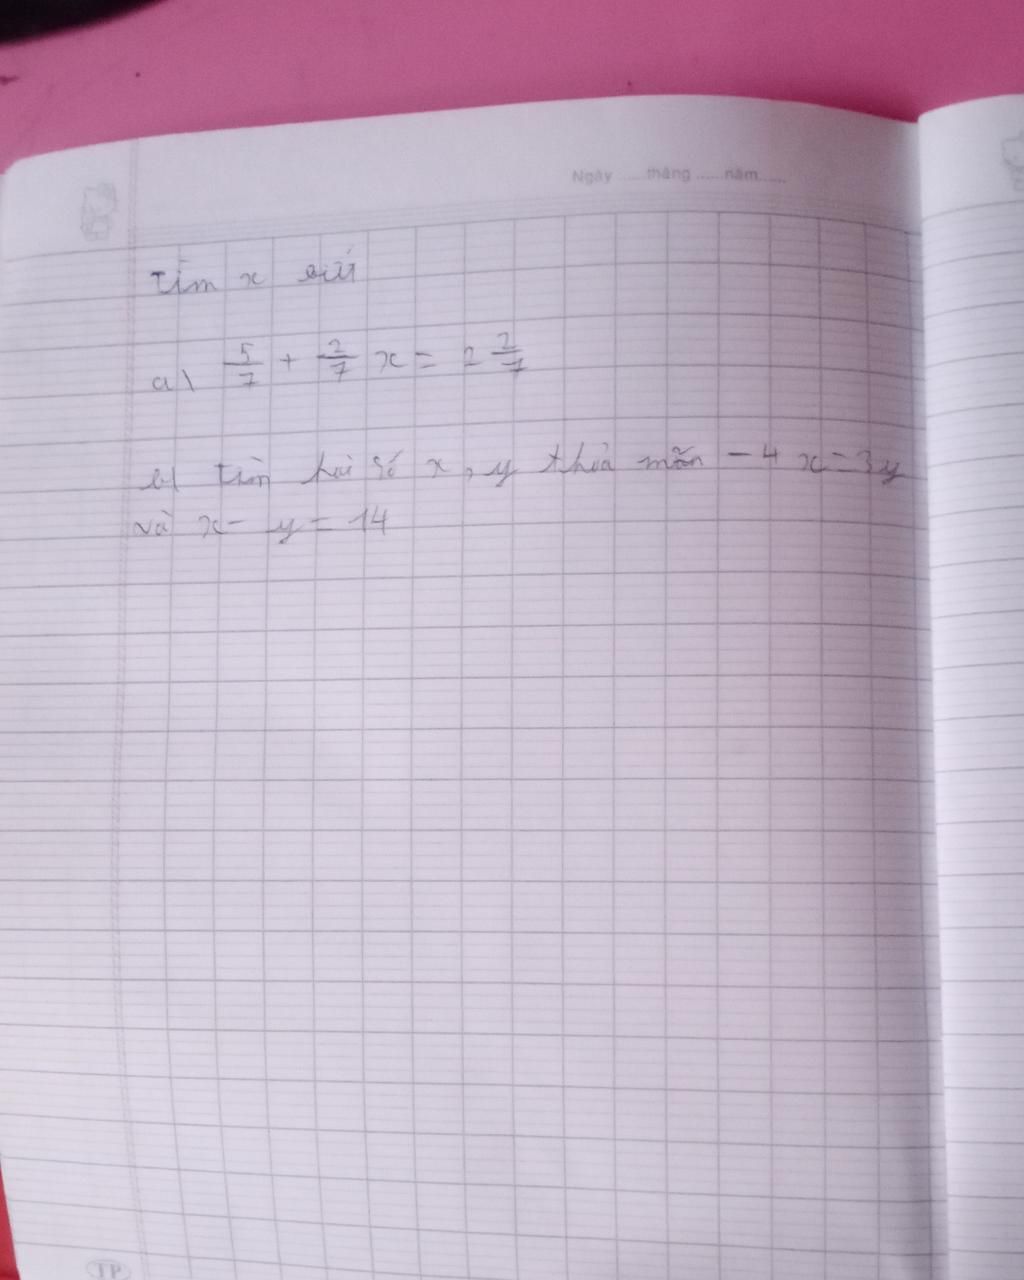 Ngày ......tháng ......năm......
Tìm x
a) 5/7 + 2/7 x = 2 2/7
b) tìm hai số x, y thỏa mãn - 4 x = 3y
và x - y = 14
TP